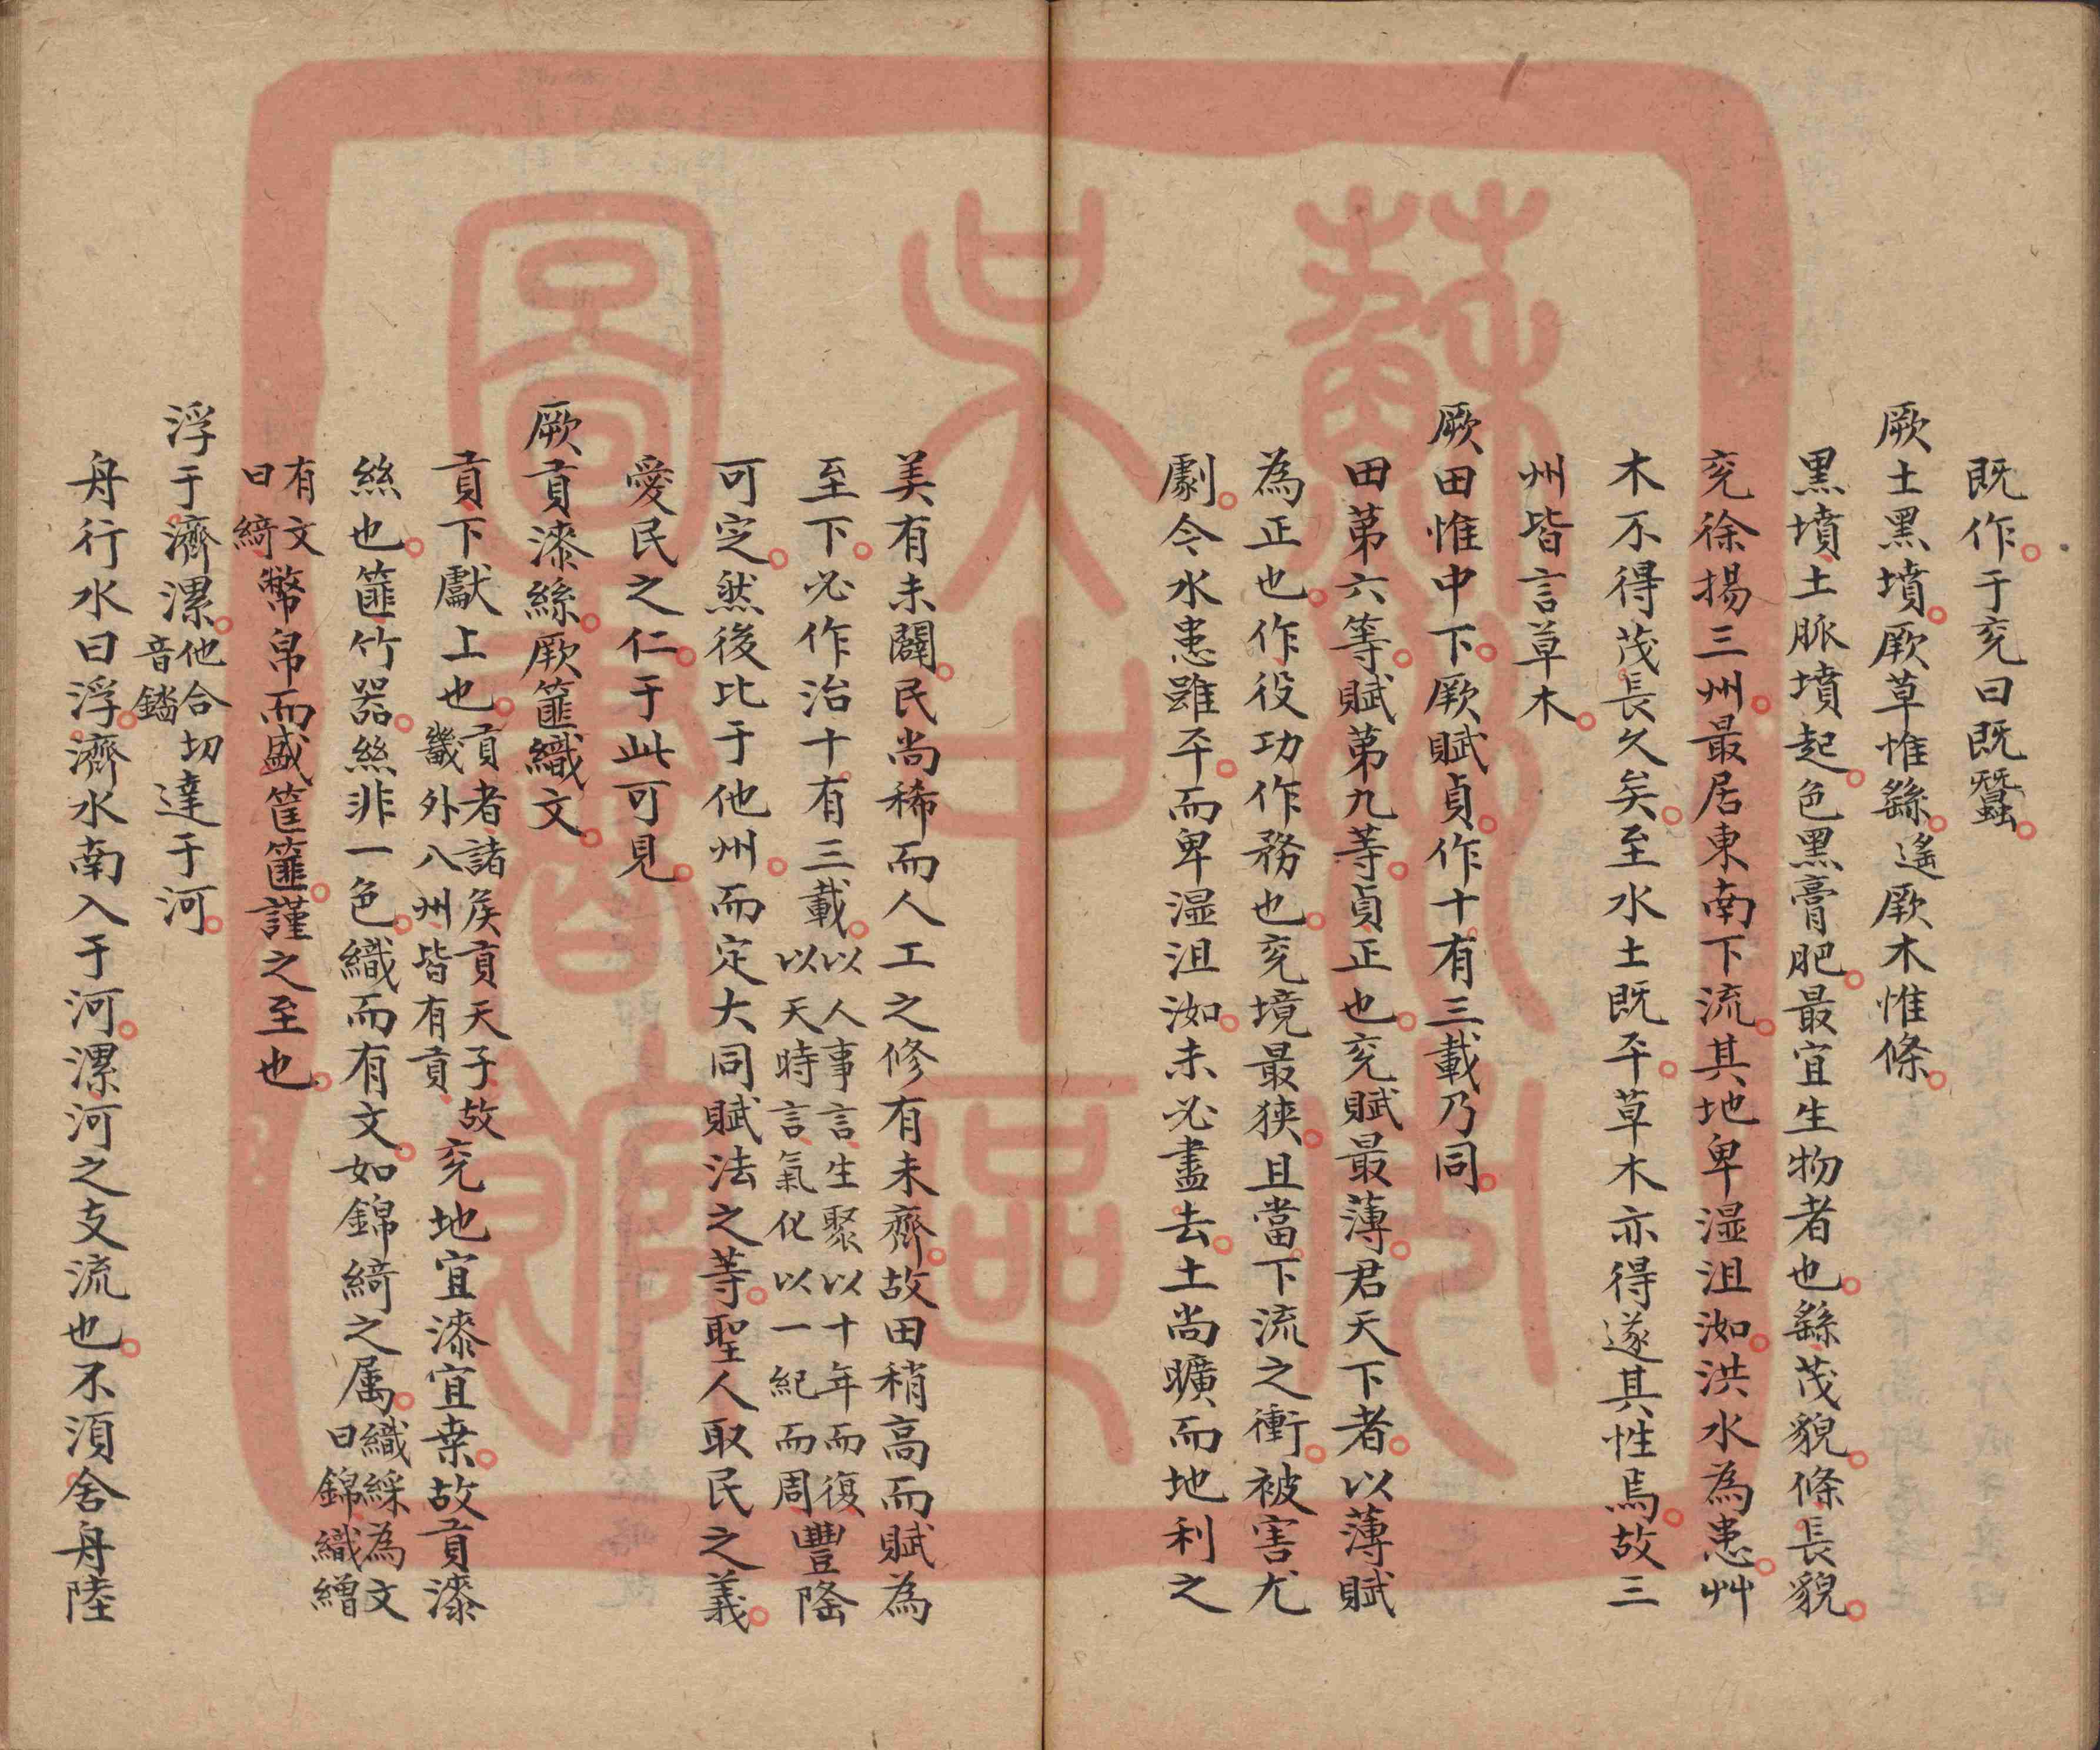 既作于兖曰既蠶
厥土黑墳厥草惟繇遙厥木惟條
黒墳土脈墳起色黑膏肥最宜生物者也繇茂貌條長貌
兖徐揚三州最居東南下流其地卑湿沮洳洪水為患艸
木不得茂長久矣至水土既平草木亦得遂其性焉故三
州皆言草木
厥田惟中下厥賦貞作十有三載乃同
田第六等賦第九等貞正也兖賦最薄君天下者以薄賦
為正也作役功作務也兖境最狹且當下流之衝被害尤
劇今水患雖平而卑湿沮洳未必盡去土尚曠而地利之
美有未闢民尚稀而人工之修有未齊故田稍高而賦為
至下必作治十有三載以人事言生聚以十年而復以天時言氣化以一紀而周豐隆
可定然後比于他州而定大同賦法之等聖人取民之義
愛民之仁于此可見
厥貢漆絲厥篚織文
貢下獻上也貢者諸侯貢天子故畿外八州皆有貢兖地宜漆宜桑故貢漆
絲也篚竹器絲非一色織而有文如錦綺之属織綵為文曰錦織繒
有文曰綺幣帛而盛筐篚謹之至也
浮于濟漯他合切音鐺達于河
舟行水曰浮濟水南入于河漯河之支流也不須舍舟陸
蘇州
吴中區
圖書館